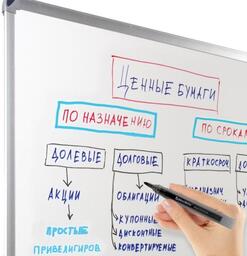 ЦЕННЫЕ БУМАГИ
ПО НАЗНАЧЕНИЮ
ПО СРОКА
ДОЛЕВЫЕ
ДОЛГОВЫЕ
КРАТКОСРОЧН
АКЦИИ
ОБЛИГАЦИИ
ПРОСТЫЕ
ПРИВЕЛИГИРОВ
КУПОННЫЕ
ДИСКОНТНЫЕ
КОНВЕРТИРУЕМЫЕ